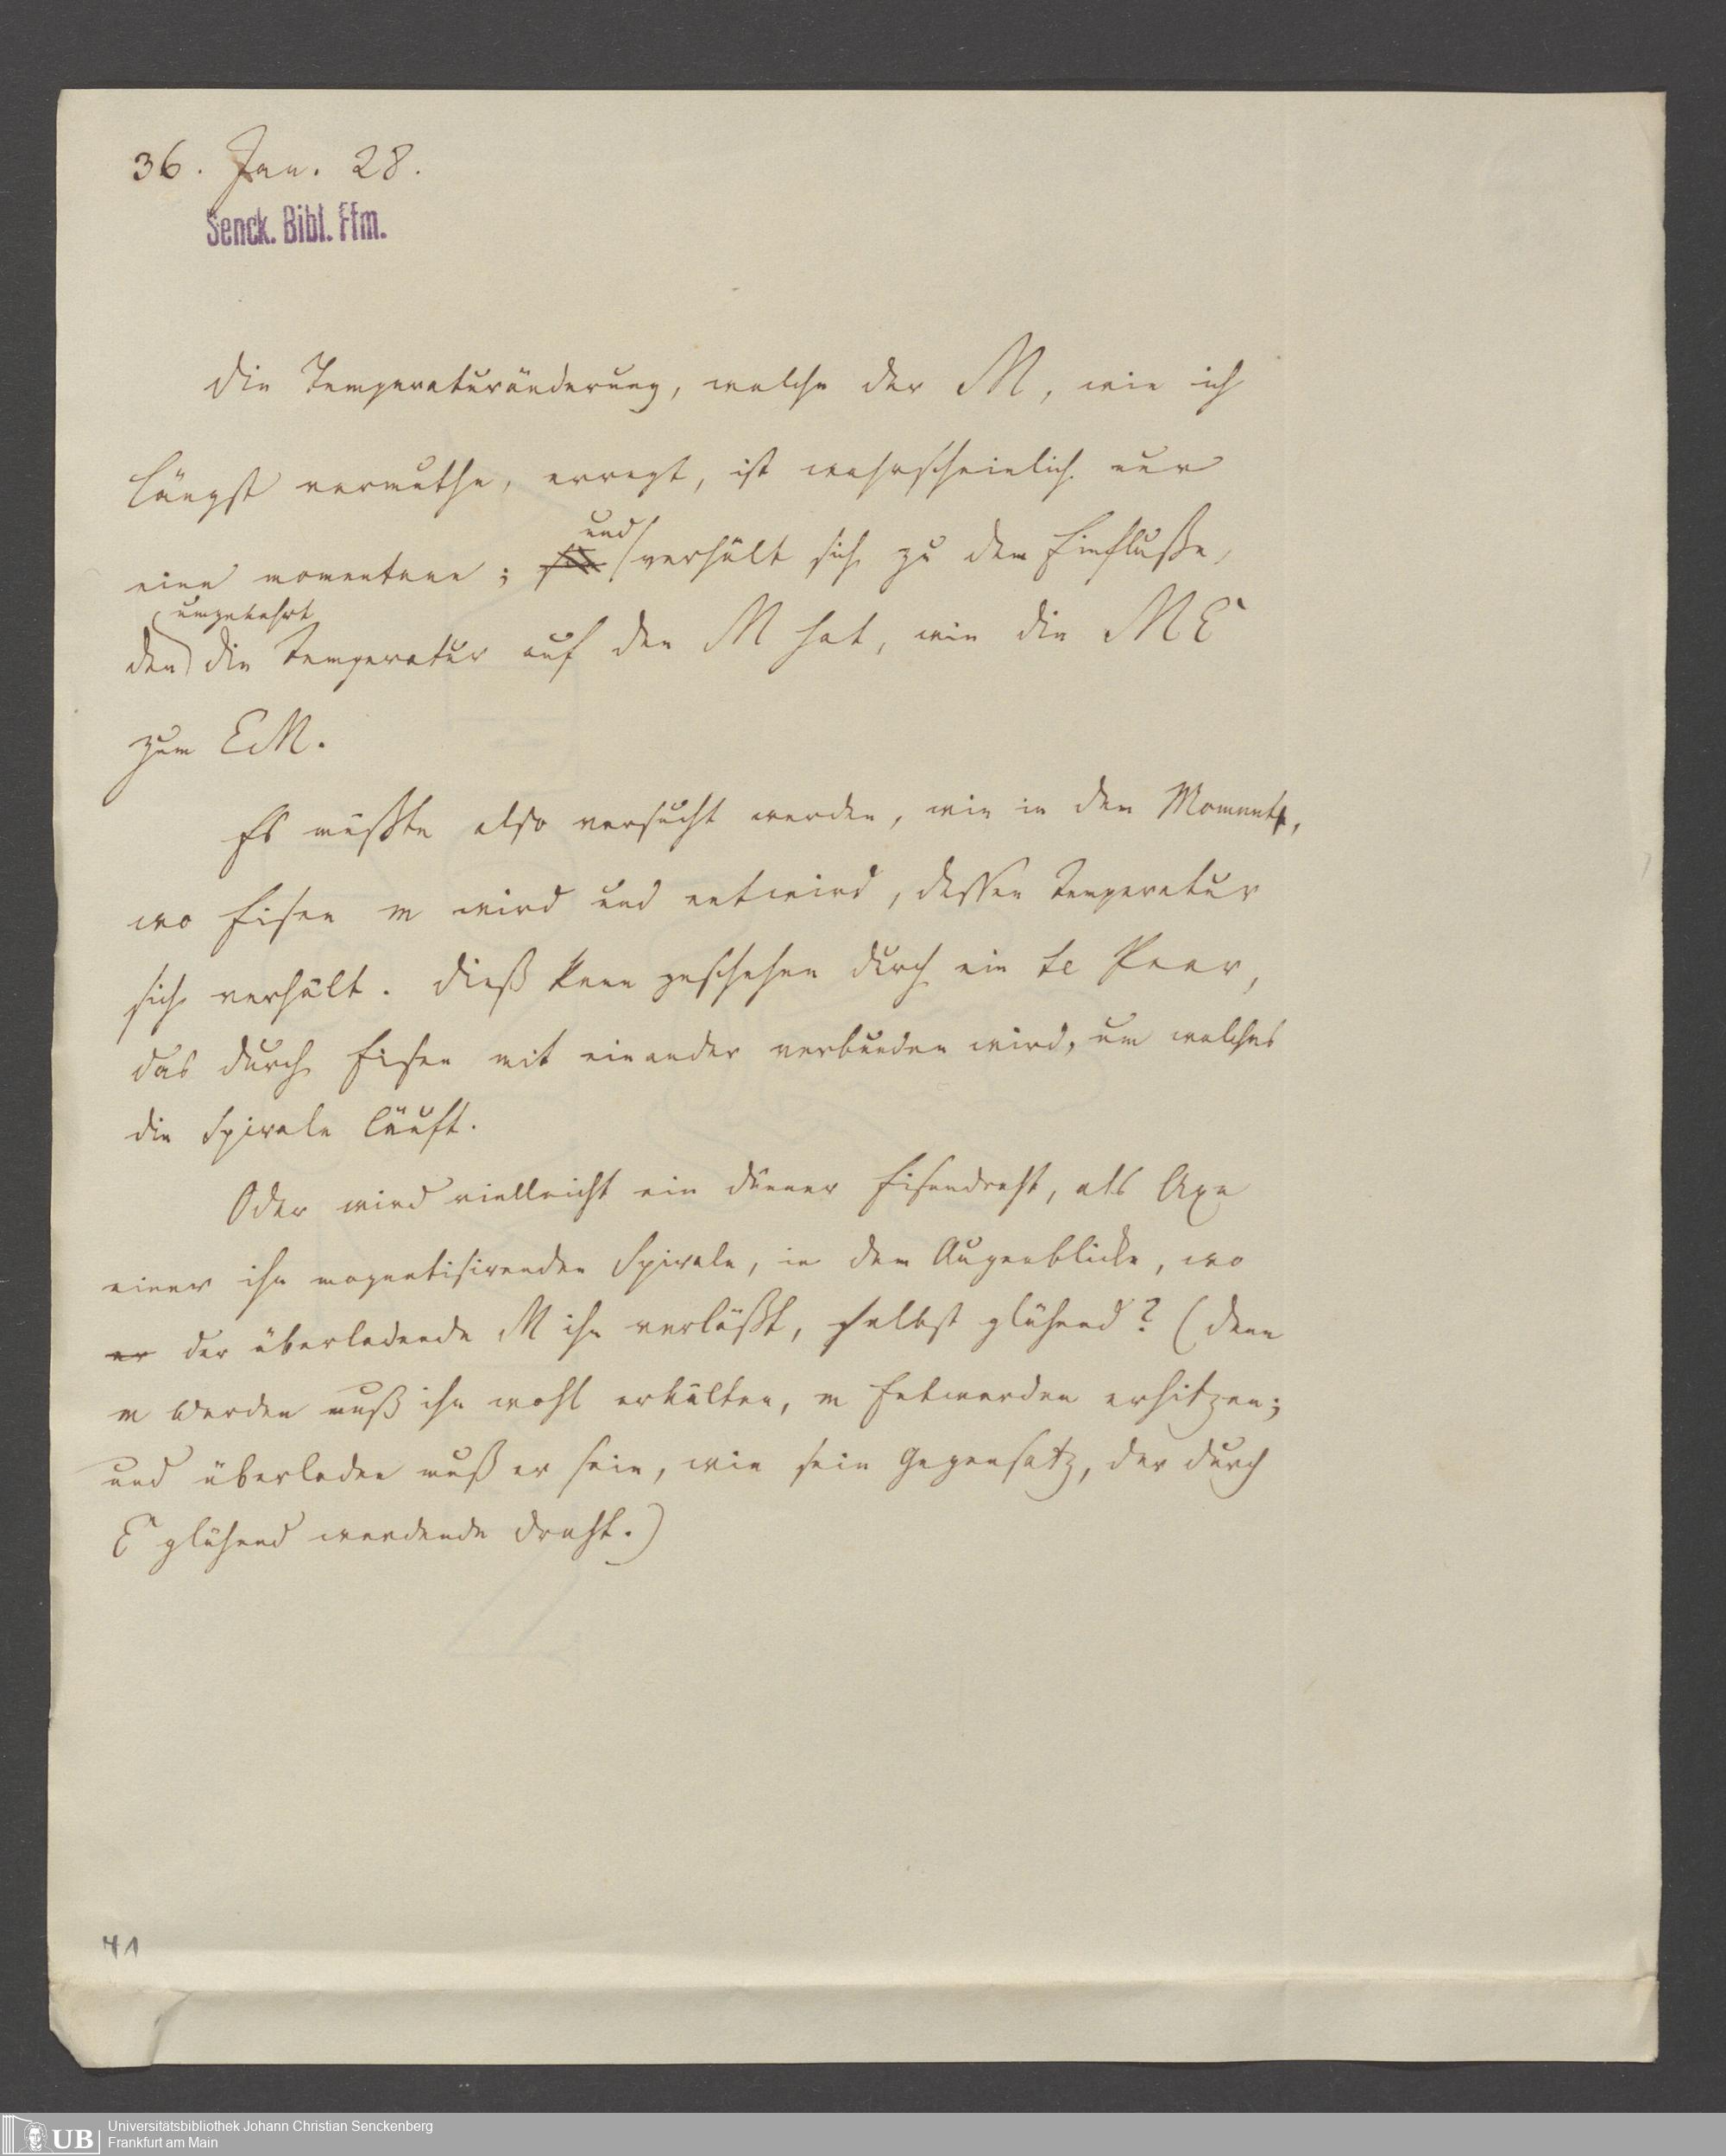 36. Jan. 28.
Senck. Bibl. Ffm.
Die Temperaturänderung, welche der M, wie ich
längst vermuthe, erregt, ist wahrscheinlich nur
eine momentane; sie und verhält sich zu dem Einfluße,
den umgekehrt die Temperatur auf den M hat, wie die ME
zum EM.
Es müßte also versucht werden, wie in dem Moment,
wo Eisen m wird und entwird, dessen Temperatur
sich verhält. Dieß kann geschehen durch ein te Paar,
das durch Eisen mit einander verbunden wird, um welches
die Spirale läuft.
Oder wird vielleicht ein dünner Eisendraht, als Axe
einer ihn magnetisirenden Spirale, in dem Augenblicke, wo
er der überladende M ihn verläßt, selbst glühend? (denn
m Werden muß ihn wohl erkälten, m Entwerden erhitzen;
und überladen muß er sein, wie sein Gegensatz, der durch
E glühend werdende Draht.)
41
UB
Universitätsbibliothek Johann Christian Senckenberg
Frankfurt am Main